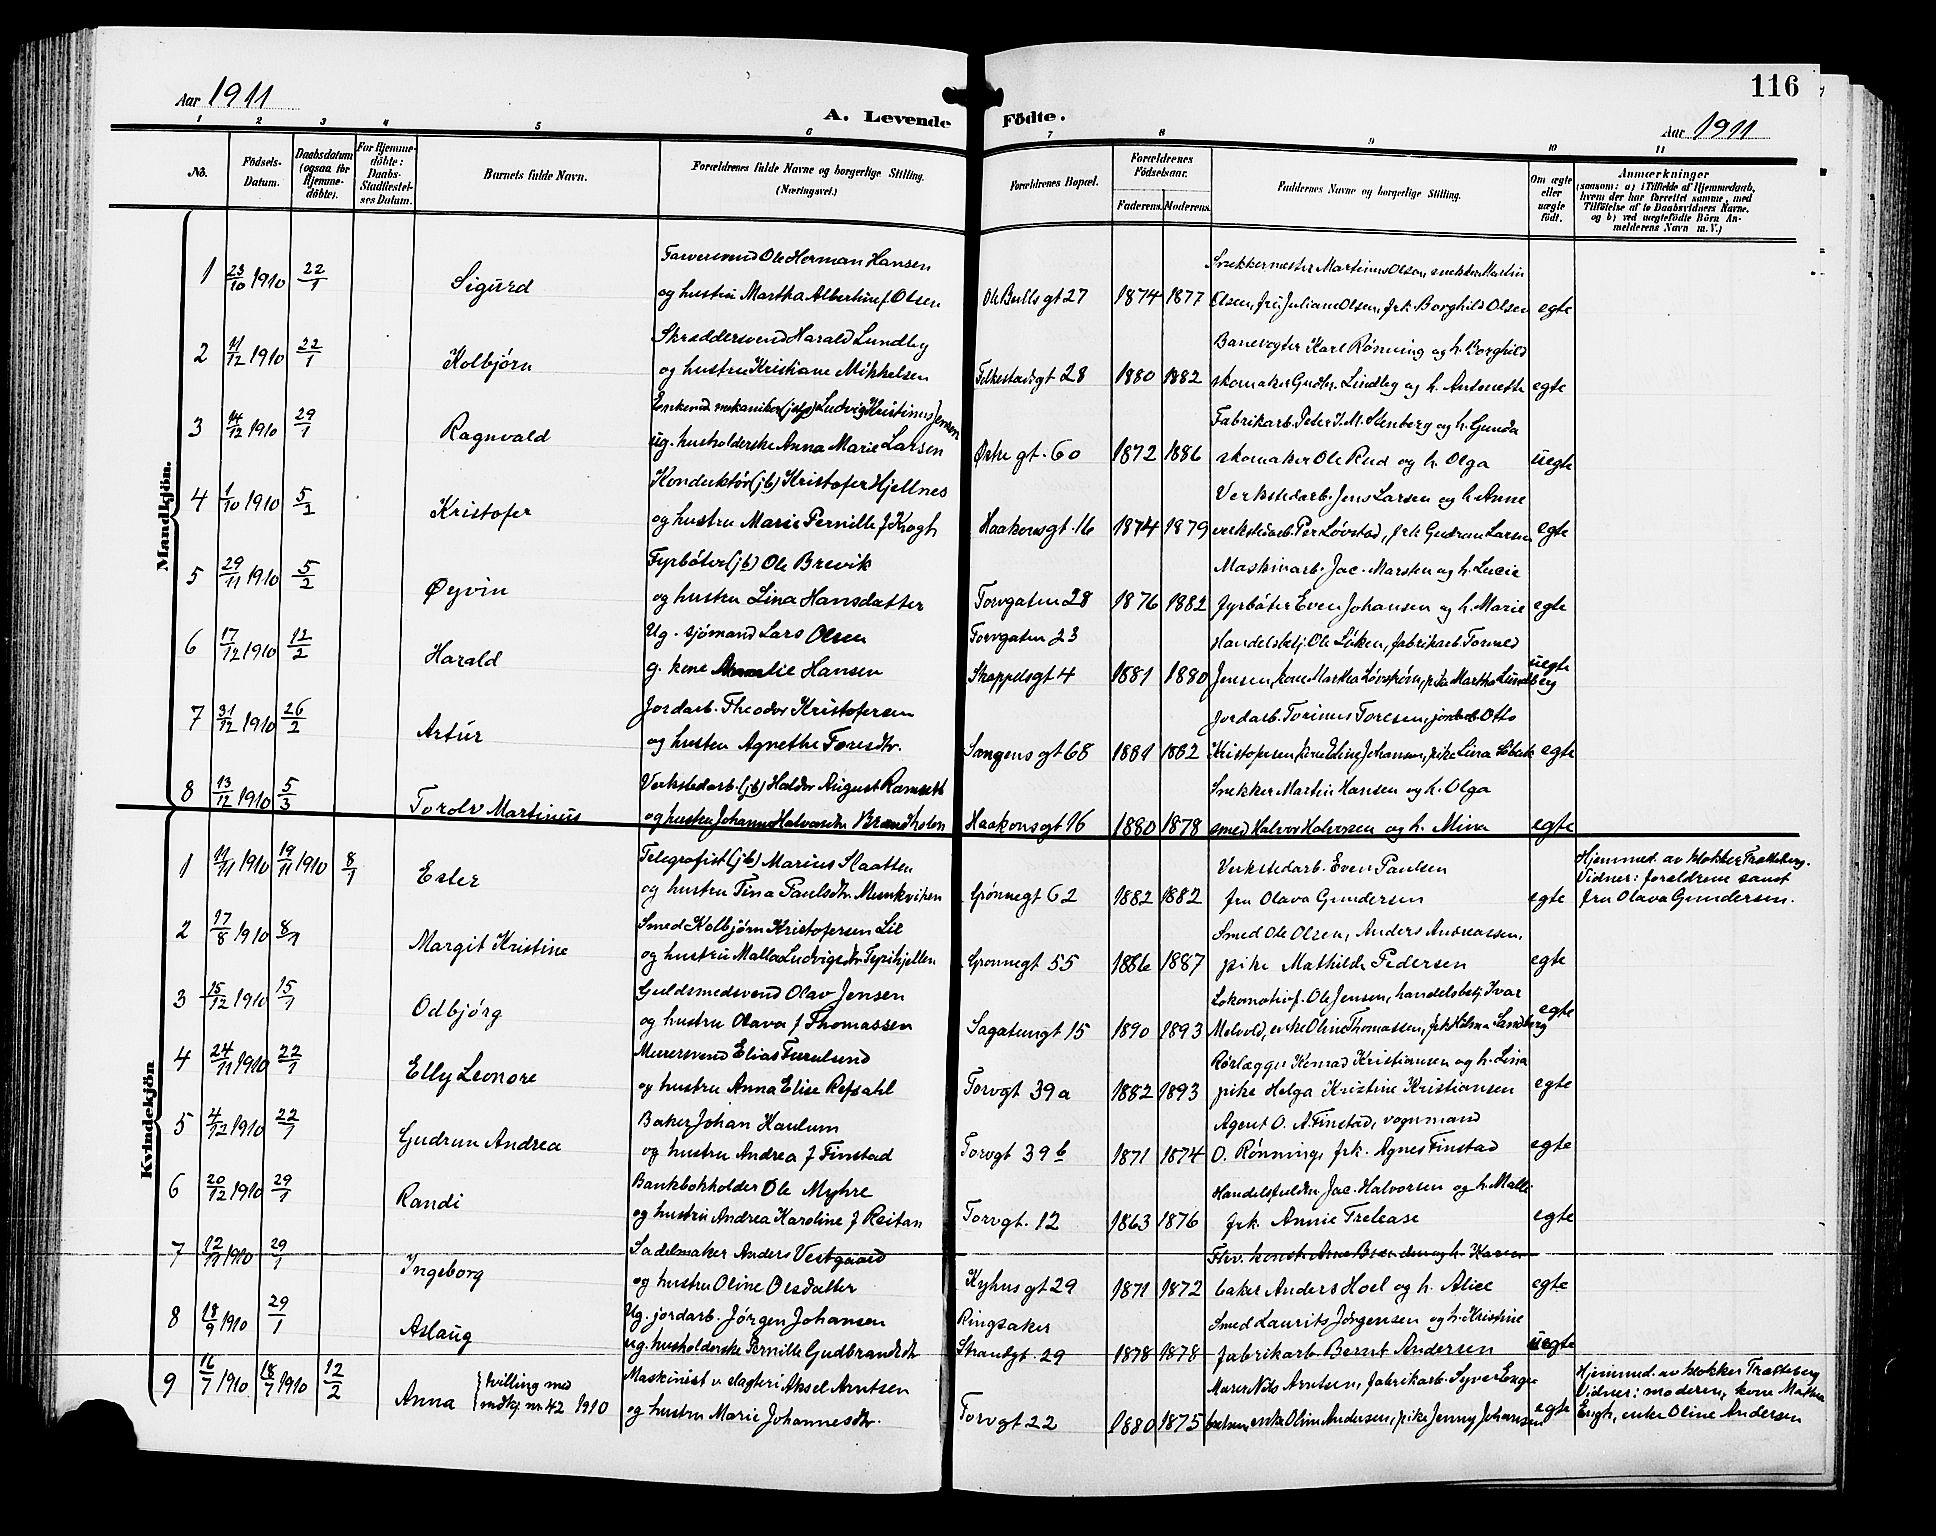 116
Aar 1911
A. Levende Födte.
Aar 1911
1 2 3 4 5 6 7 8 9 10 11
No.
Födsels-Datum.
Daabsdatum (ogsaa for Hjemmedöbte).
For Hjemmedöbte: Daabs-Stadfæstelses Datum.
Barnets fulde Navn.
Forældrenes fulde Navne og borgerlige Stilling. (Næringsvei.)
Forældrenes Bopæl.
Forældrenes Födselsaar.
Faderens. Moderens.
Faddernes Navne og borgerlige Stilling.
Om ægte eller uægte födt.
Anmærkninger
(saasom: a) i Tilfælde af Hjemmedaab, hvem der har forrettet samme, med Tilföielse af to Daabsvidners Navne, og b) ved uægtefödte Börn Anmelderens Navn m. V.)
Mandkjön.
1 23/10 1910 22/1 Sigurd
Farversvend Ole Herman Hansen
og hustru Martha Albertine f Olsen
Ole Bulls gt 27 1874 1877
Snekkermester Martinus Olsen, snekker Martin
Olsen, fru Juliane Olsen, frk Borghild Olsen egte
2 11/12 1910 22/1 Kolbjörn
Skræddersvend Harald Lundby
og hustru Kristiane Mikkelsen
Folkestadsgt 28 1880 1882
Banevogter Karl Rönning og h. Borghild
skomaker Gudbr. Lundby og h. Antonette egte
3 14/12 1910 29/1 Ragnvald
mekaniker (jb) Ludvig Kristinus Jensen
ug. husholderske Anna Marie Larsen
Østre gt. 60 1872 1886
Fabrikarb. Peter J. M. Stenberg og h. Gunda
skomaker Ole Rud og h. Olga uegte
4 1/10 1910 5/2 Kristofer
Konduktör (jb) Kristofer Hjellnes
og hustru Marie Pernille f Krogh
Haakonsgt. 16 1874 1879
Verkstedarb. Jens Larsen og h. Anne
verkstedarb. Per Lövstad, frk Gudrun Larsen egte
5 29/11 1910 5/2 Øyvin
Fyrböter (jb) Ole Brevik
og hustru Lina Hansdatter
Torvgaten 28 1876 1882
Maskinarb. Jac. Marsten og h. Lucie
fyrböter Even Johansen og h. Marie egte
6 17/12 1910 12/2 Harald
Ug. sjömand Lars Olsen
g. kone Amalie Hansen
Torvgaten 23
Skappelsgt 4 1881 1880
Handelsbetj. Ole Löken, fabrikarb. Tormod
Jensen, kone Martha, pike Martha Lundberg uegte
7 31/12 1910 26/2 Artur
Jordarb. Theodor Kristofersen
og hustru Agnethe Toresdtr.
Sangens gt 68 1881 1882
Jordarb. Torinus Toresen, jordarb Otto
Kristofersen, kone Eline Johansen, pike Lina egte
8 13/12 1910 5/3 Torolv Martinus
Verkstedarb. (jb) Haldor August Ramseth
og hustru Johanne Halvorsdtr Brændholen
Haakonsgt 16 1880 1878
Snekker Martin Hansen og h. Olga
smed Halvor Halvorsen og h. Mina egte
Kvindekjön
1 11/11 1910 19/11 1910 8/1 Ester
Telegrafist (jb) Marius Slaatten
og hustru Tina Paulsdtr. Munkviken
Grönnegt 62 1882 1882
Verkstedarb. Even Paulsen
fru Olava Gundersen egte
Hjemmed. av klokker Trætteberg.
Vidner: forældrene samt
fru Olava Gundersen.
2 17/8 1910 8/1 Margit Kristine
Smed Kolbjörn Kristofersen Lie
og hustru Malla Ludvigsdtr Tyrihjellen
Grönnegt 55 1886 1887
Smed Ole Olsen, Anders Andreassen,
pike Mathilde Pedersen egte
3 15/12 1910 15/1 Odbjörg
Guldsmedsvend Olav Jensen
og hustru Olava f Thomassen
Sagatungt 15 1890 1893
Lokomotivf. Ole Jensen, handelsbetj. Ivar
Melvold, enke Oline Thomassen, frk Hilma Sandberg egte
4 24/11 1910 22/1 Elly Leonore
Murersvend Elias Furulund
og hustru Anna Elise Refsahl
Torvgt 39 a 1882 1893
Rörlægger Konrad Kristiansen og h. Lina
pike Helga Kristine Kristiansen egte
5 4/12 1910 22/1 Gudrun Andrea
Baker Johan Haulum
og hustru Andrea f Finstad
Torvgt 39 b 1871 1874
Agent O. A. Finstad, vognmand
O. Rönning, frk. Agnes Finstad egte
6 20/12 1910 29/1 Randi
Bankbokholder Ole Myhre
og hustru Andrea Karoline f Reitan
Torvgt. 12 1863 1876
Handelsfuldm Jac. Halvorsen og h. Malli
frk. Annie Trelease egte
7 12/11 1910 29/1 Ingeborg
Sadelmaker Anders Vestgaard
og hustru Oline Olsdatter
Kyhusgt 29 1871 1872
konst. Arne Brænden og h. Karen
baker Anders Hoel og h. Alice egte
8 18/9 1910 29/1 Aslaug
Ug. jordarb. Jörgen Johansen
ug. husholderske Pernille Gudbrandsdtr
Ringsaker
Strandgt. 29 1878 1878
Smed Laurits Jörgensen og h. Kristine
fabrikarb. Bernt Andersen uegte
9 16/7 1910 18/7 1910 12/2 Anna {tvilling med mdkj. nr. 42 1910
Maskinist v. slagteri Aksel Arntsen
og hustru Marie Johannesdtr.
Torvgt 22 1880 1875
Murer Nils Arntsen, fabrikarb. Syver
enke Oline Andersen, pike Jenny Johansen egte
Hjemmed. av klokker Trætteberg
Vidner: moderen, kone Mathea
Engh, enke Oline Andersen